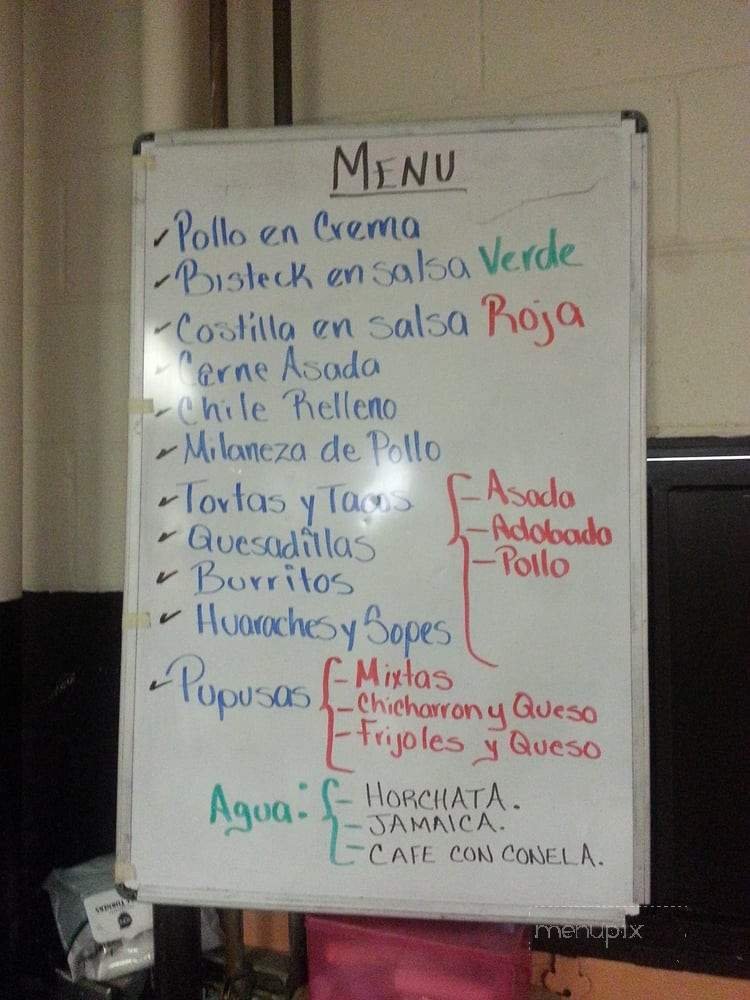 MENU
Pollo en Crema
Bisteck en salsa Verde
Costilla en salsa Roja
Carne Asada
Chile Relleno
Milaneza de Pollo
Tortas y Tacos
- Asada
Quesadillas
- Adobado
- Pollo
Burritos
Huaraches y Sopes
Pupusas
- Mixtas
- Chicharron y Queso
- Frijoles y Queso
Agua:
- HORCHATA.
- JAMAICA.
- CAFE CON CONELA.
menupix